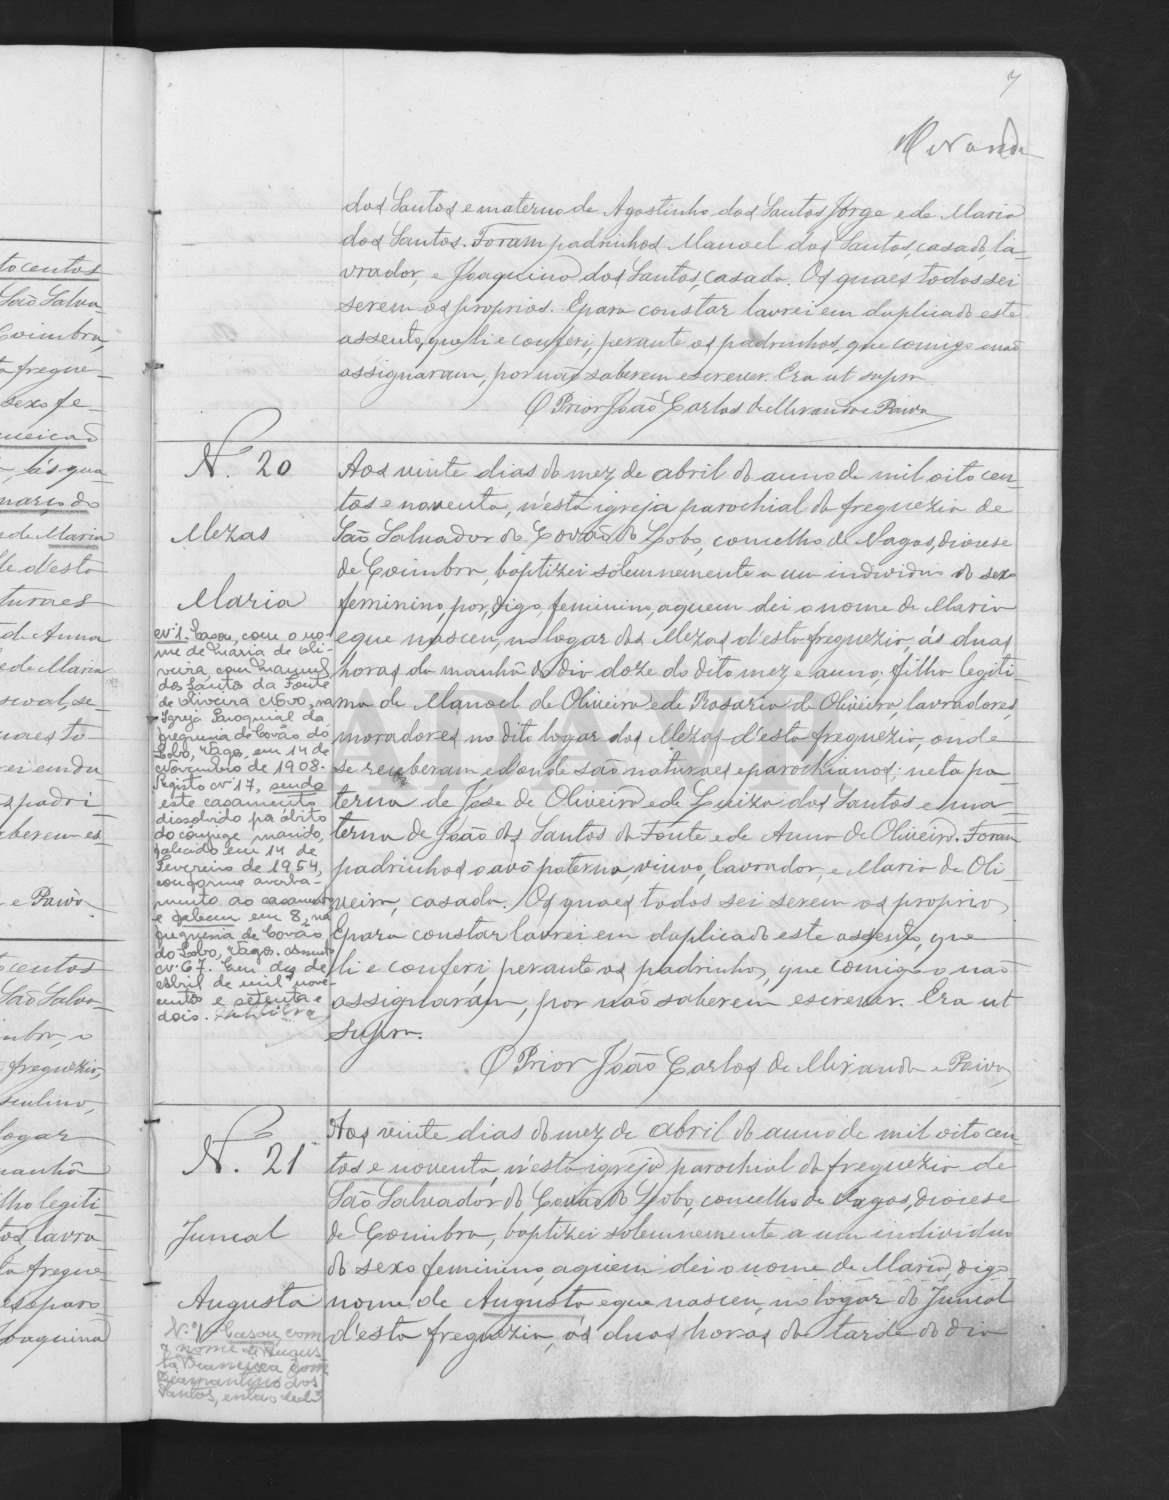 7
Miranda
dos Santos e materno de Agostinho dos Santos Jorge e de Maria
dos Santos. Foram padrinhos Manoel dos Santos, casado, la-
vrador, e Joaquina dos Santos, casada. Os quaes todos sei
serem os proprios. E para constar lavrei em duplicado este
assento, que li e conferi, perante os padrinhos, que comigo o não
assignaram, por não saberem escrever. Era ut supra
O Prior João Carlos de Miranda e Paiva
N. 20
Mezas
Maria
Aos vinte dias do mez de abril do anno de mil oito cen-
tos e noventa, n'esta igreja parochial da freguezia de
São Salvador do Covão do Lobo, concelho de Vagos, diocese
de Coimbra, baptizei solemnemente a um individuo do sexo
feminino, por, digo, feminino, a quem dei o nome de Maria
e que nasceu, no logar das Mezas d'esta freguezia, ás duas
horas da manhã do dia doze do dito mez e anno, filha legiti-
ma de Manoel de Oliveira e de Rosaria de Oliveira, lavradores,
moradores no dito logar das Mezas d'esta freguezia, onde
se receberam e d'onde são naturaes e parochianos; neta pa
terna de Jose de Oliveira e de Luiza dos Santos e ma-
terna de João dos Santos da Fonte e de Anna de Oliveira. Foram
padrinhos o avô paterno, viuvo, lavrador, e Maria de Oli-
veira, casada. Os quaes todos sei serem os proprios,
E para constar lavrei em duplicado este assento, que
li e conferi, perante os padrinhos, que comigo o não
assignaram, por não saberem escrever. Era ut
supra.
O Prior João Carlos de Miranda e Paiva
nº 1. Casou, com o no-
me de Maria de Oli-
veira, com Manuel
dos Santos da Fonte
de Oliveira Novo, na
Igreja Paroquial da
freguesia de Covão do
Lobo, Vagos, em 14 de
Novembro de 1908.
Registo nº 17, sendo
este casamento
dissolvido por óbito
do cônjuge marido,
falecido em 14 de
Fevereiro de 1954,
conforme averba-
mento ao casamento
e faleceu em 8, na
freguesia de Covão
do Lobo, Vagos. Assento
nº 67. Em dez de
Abril de mil nove-
centos e setenta e
dois.
N. 21
Juncal
Augusta
Aos vinte dias do mez de abril do anno de mil oito cen-
tos e noventa, n'esta igreja parochial da freguezia de
São Salvador do Covão do Lobo, concelho de Vagos, diocese
de Coimbra, baptizei solemnemente a um individuo
do sexo feminino, a quem dei o nome de Maria, digo
nome de Augusta e que nasceu, no logar do Juncal
d'esta freguezia, ás duas horas da tarde do dia
Nº 1 Casou com
o nome de Augus
ta com
Diamantino dos
Santos,
to centos
São Salva-
Coimbra,
a fregue-
sexo fe-
Conceição
março do
e de Maria
de d'esta
turaes
de Anna
e de Maria
padri
berem es-
e Paiva
centos
São Salva-
freguezia,
sculino,
logar
manhã
lho legiti-
lavra-
a fregue-
Joaquina